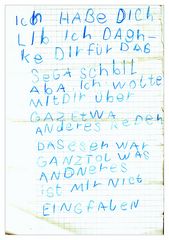 Ich HABE DICH
LIB ich DAGH-
ke DIR FÜR DAS
SEGA SchbIL
ABA Ich WOLTE
mit DIR ÜBER
GAZ ETWA
ANDERES REHEN
DAS ESEN WAR
GANZ TOL WAS
ANDNERES
iST MIR NICT
EINGFALEN